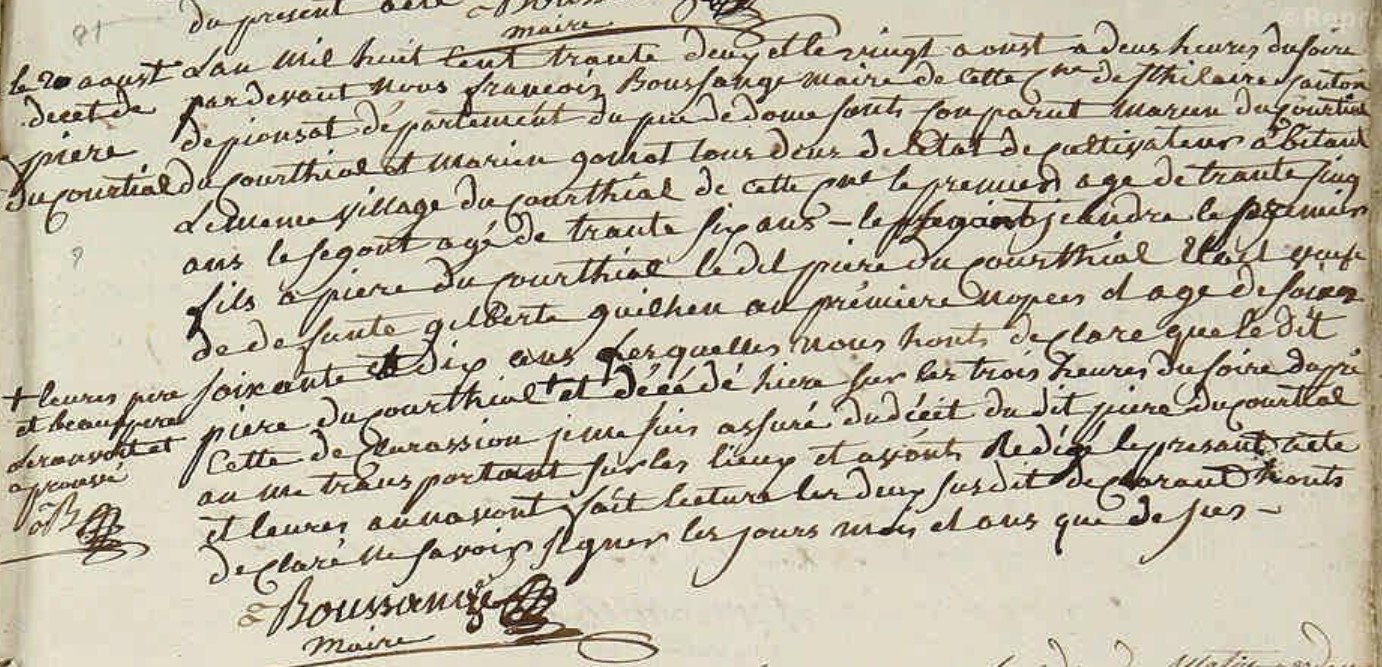 du present acte
maire
le 20 aoust
decet de
piere
du courtial
L'an mil huit cent trante deux et le vingt aoust a deus heures du soire
par devant nous francois Boussange maire de cette cne de st hilaire canton
de pionsat département du pue de dome sonts conparut marien du courtial
du courthial et marien gomot tous deux de letat de cultivateur abitant
le meme village du courthial de cette cne le premier age de trante sinq
ans le segont agé de trante six ans - le segont jeandre le premier
fils a piere du courthial le dit piere du courthial etait veuf
de defunte gilberte guilhen au prémiere nopces et age de
soixante et dix ans lesquelles nous honts declare que le dit
piere du courthial + et décédé hiere sur les trois heures du soire dapré
cette declarassion je me suis assuré du décét du dit piere du courtial
au me transportant sur les lieux et avonts redigé le presant acte
et leures annavont fait lecture les deux susdit declarant honts
declaré ne savoir signer les jours mois et ans que de sus -
+ leures pere
et beaupere
le ranvoit et
aprouvé
B
Boussange
maire